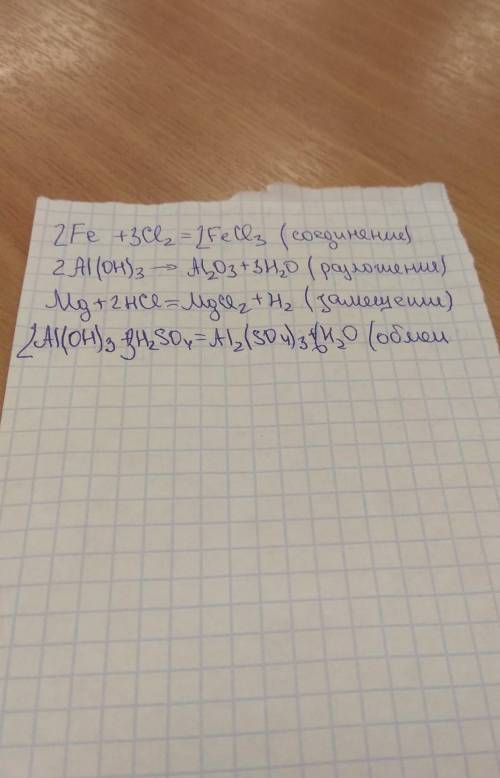 2Fe + 3Cl₂ = 2FeCl₃ (соединение)
2Al(OH)₃ → Al₂O₃ + 3H₂O (разложение)
Mg + 2HCl = MgCl₂ + H₂ (замещение)
2Al(OH)₃ + 3H₂SO₄ = Al₂(SO₄)₃ + 6H₂O (обмен